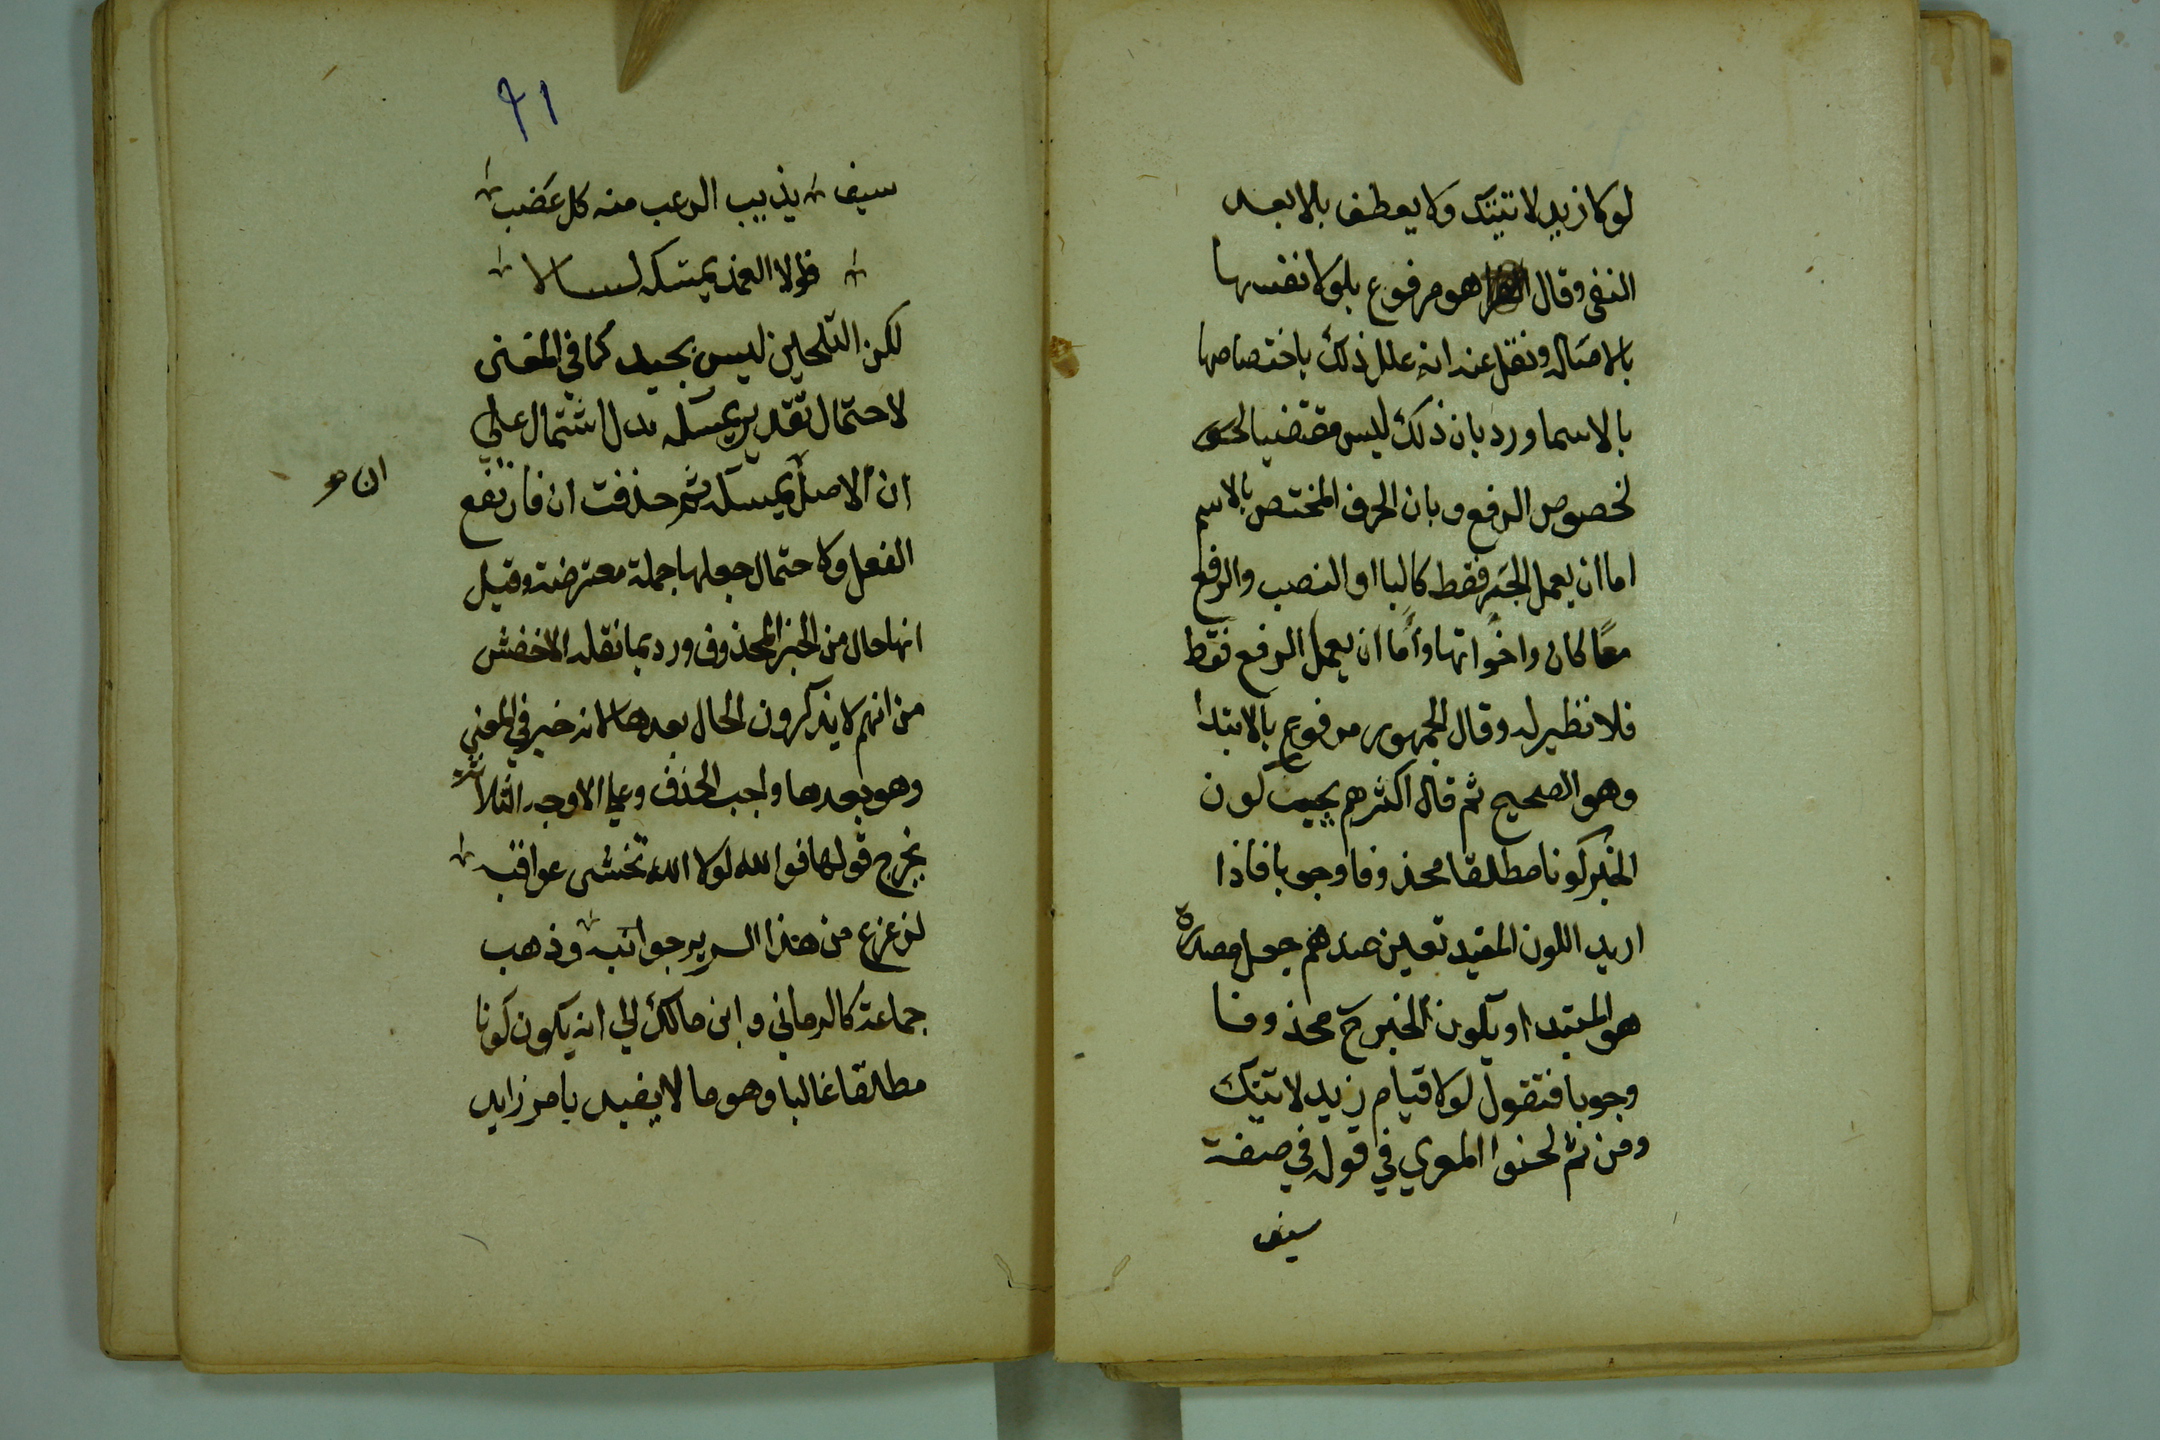 لوكا زيد لاتيتك ولا يعطف بلا بعد
النفي وقال الفرا هو مرفوع بلولا نفسها
بالاصالة ونقل عنه انه علل ذلك باختصاصها
بالاسما ورد بان ذلك ليس مقتضيا
لخصوص الرفع وبان الحرف المختص بالاسم
اما ان يعمل الجر فقط كالبا او النصب والرفع
معًا كان واخواتها واما ان يعمل الرفع فقط
فلا نظير له وقال الجمهور مرفوع بالابتدا
وهو الصحيح ثم قال اكثرهم يجب كون
الخبر كونا مطلقا محذوفا وجوبا فاذا
اريد الكون المقيد تعين عندهم جعل مصدره
هو المبتدا ويكون الخبر ح محذوفا
وجوبا فتقول لولا قيام زيد لاتيتك
ومن ثم لحنوا المعري في قوله في صفة
سيف
٩١
سيف يذيب الرعب منه كل عضب
فلولا الغمد يمسكه لسالا
لكن التلحين ليس بجيد كما في المغنى
لاحتمال تقدير يمسكه بدل اشتمال علي
ان الاصل يمسكه ثم حذفت ان فارتفع
ان صح
الفعل ولاحتمال جعلها جملة معترضة وقيل
انها حال من الخبر المحذوف ورد بما نقله الاخفش
من انهم لا يذكرون الحال بعدها لانه خبر في المعني
وهو بعدها واجب الحذف وعلي الاوجه الثلاثة
يخرج قولها فوالله لولا الله تخشى عواقبه
لزعزع من هذا السرير جوانبه وذهب
جماعة كالرماني وابن مالك الي انه يكون كونا
مطلقا غالبا وهو ما لا يفيد بامر زايد